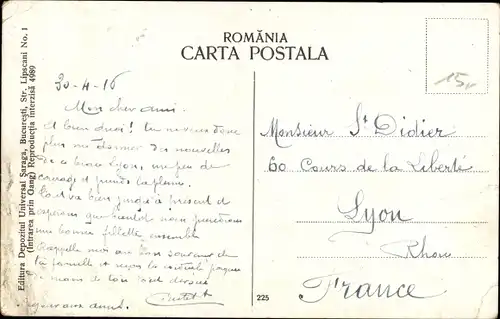 ROMÂNIA
CARTA POSTALA
Editura Depozitul Universal Șaraga, București, Str. Lipscani No. 1
(Intrarea prin Gang) Reproducția interzisă 4989
30-4-16
Mon cher ami.
A bien quoi! tu ne veux donc
plus me donner des nouvelles
de ce beau Lyon, un peu de
courage et prends la plume.
Tout va bien jusqu'à présent et
espérons que bientôt nous prendrons
une bonne fillette ensemble
Rappelle moi au bon souvenir de
ta famille et reçois la cordiale poignée
de mains de ton
Monsieur St Didier
60 Cours de la Liberté
Lyon
Rhone
France
225